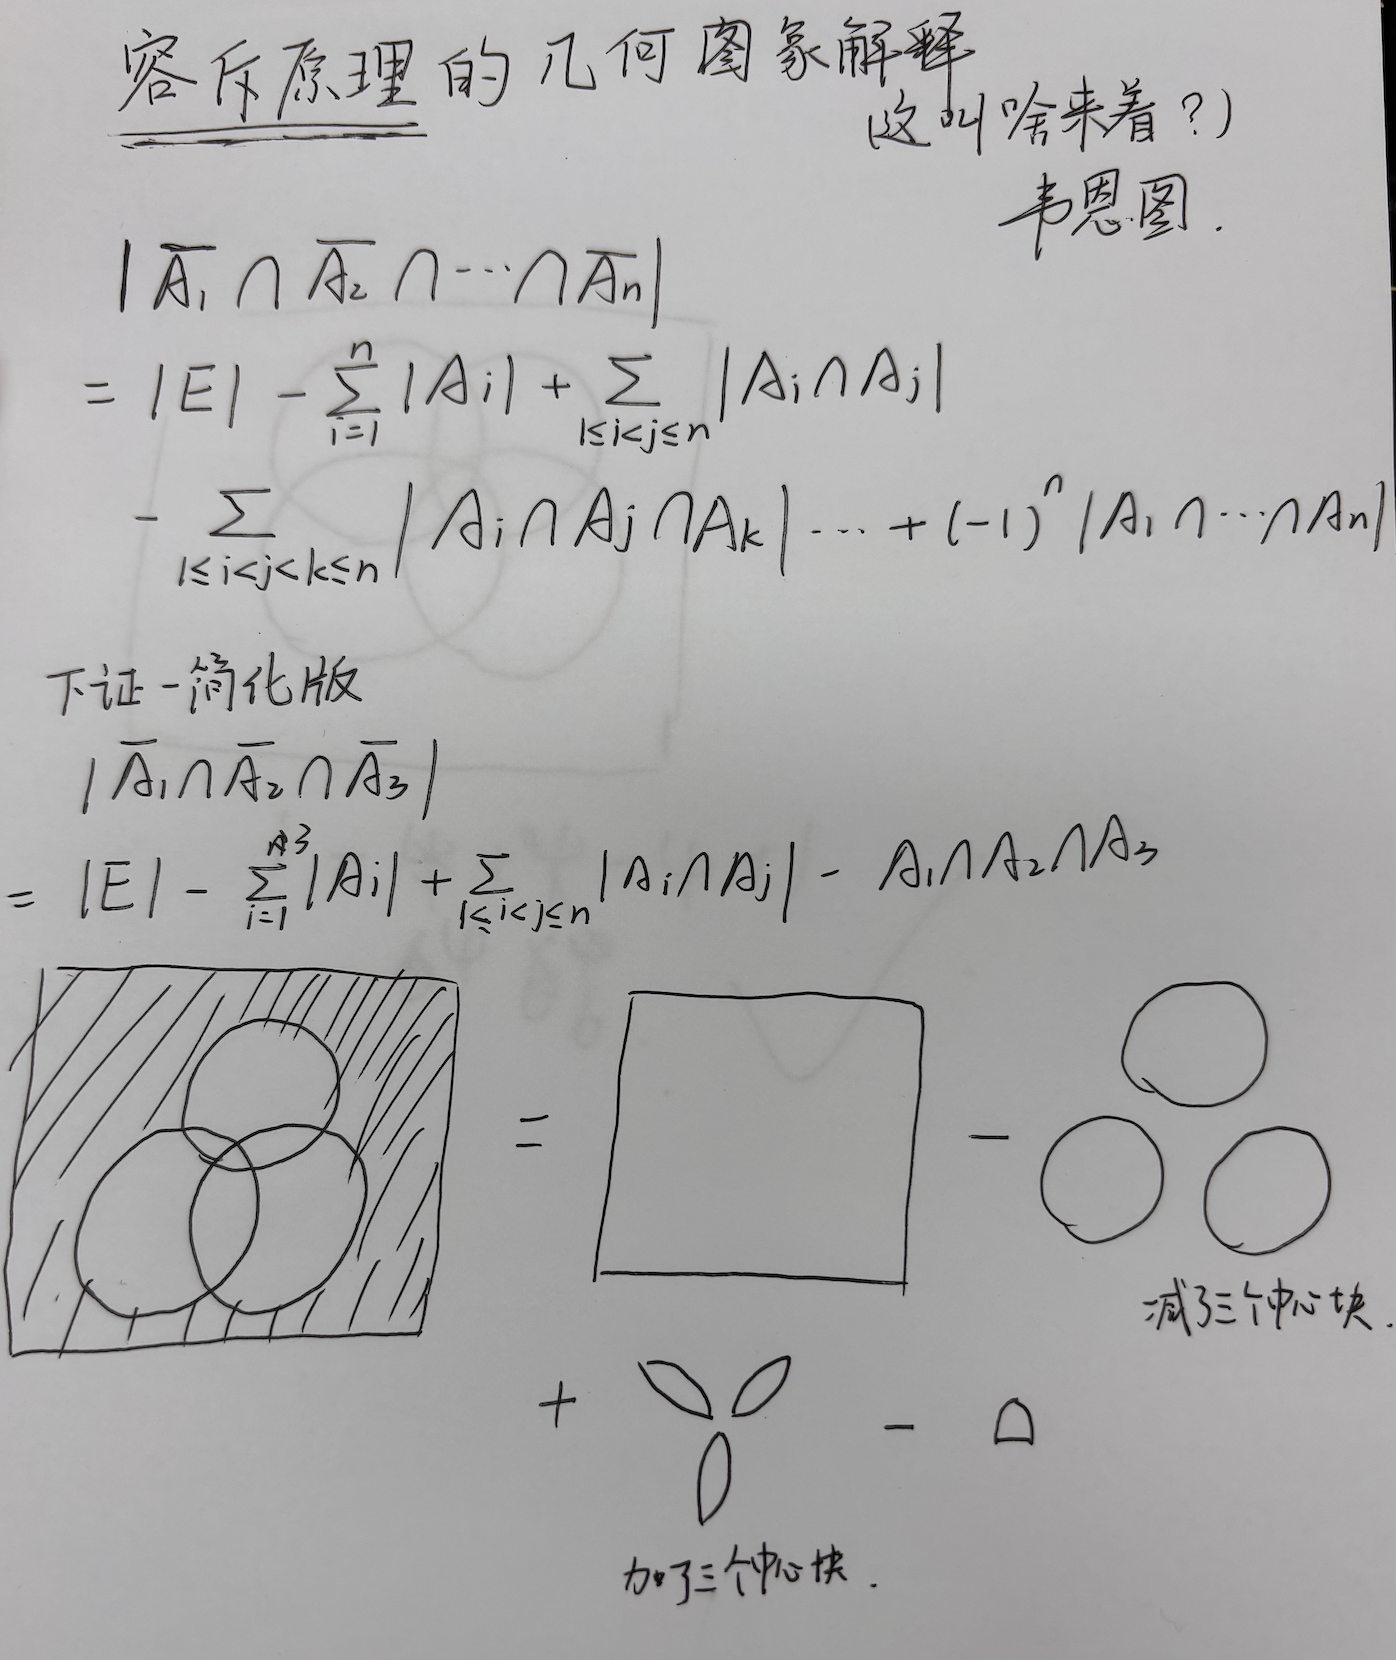 容斥原理的几何图象解释
(这叫啥来着?)
韦恩图.
|A̅₁ ∩ A̅₂ ∩ ⋯ ∩ A̅n|
= |E| - ∑ⁿᵢ₌₁ |Ai| + ∑1≤i<j≤n |Ai ∩ Aj|
- ∑1≤i<j<k≤n |Ai ∩ Aj ∩ Ak| ⋯ + (-1)ⁿ |A₁ ∩ ⋯ ∩ An|
下证一简化版
|A̅₁ ∩ A̅₂ ∩ A̅₃|
= |E| - ∑³ᵢ₌₁ |Ai| + ∑1≤i<j≤n |Ai ∩ Aj| - A₁ ∩ A₂ ∩ A₃
= -
减了三个中心块.
+ -
加了三个中心块.